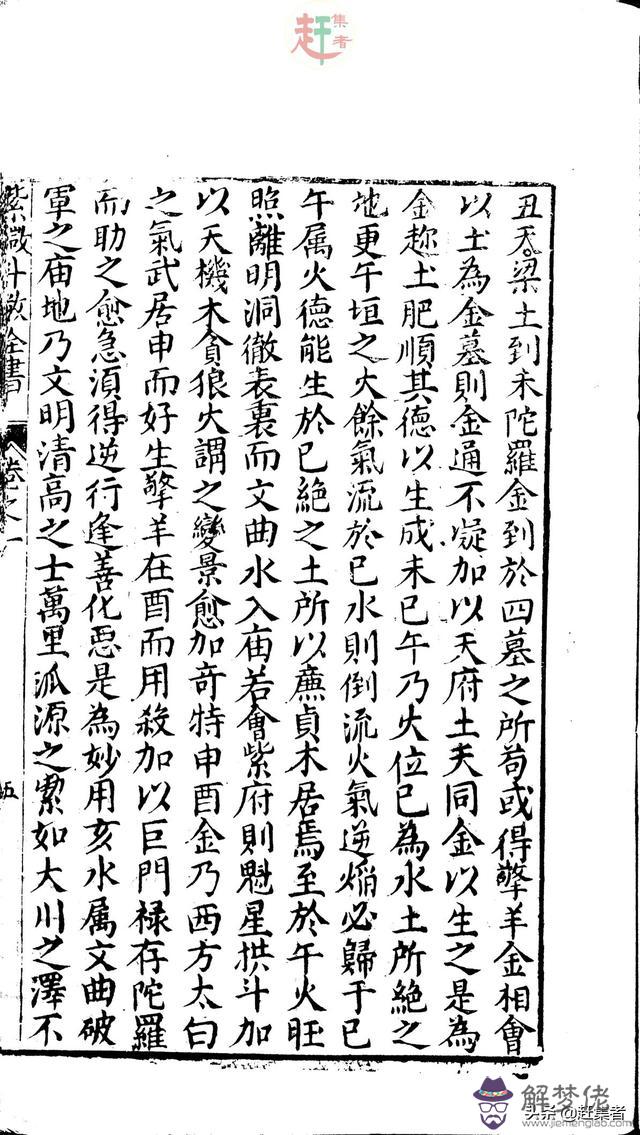 赶集者
丑天梁土到未陀羅金到於四墓之所苟或得擎羊金相會
以土為金墓則金通不凝加以天府土天同金以生之是為
金趂土肥順其德以生成未巳午乃火位巳為水土所絕之
地更午垣之火餘氣流於巳水則倒流火氣逆焰必歸于巳
午属火德能生於巳絶之土所以廉貞木居焉至於午火旺
照離明洞徹表裏而文曲水入庙若會紫府則魁星拱斗加
以天機木貪狼火謂之變景愈加奇特申酉金乃西方太白
之氣武居申而好生擎羊在酉而用殺加以巨門禄存陀羅
而助之愈急須得逆行逢善化惡是為妙用亥水属文曲破
軍之庙地乃文明清高之士萬里派源之潔如大川之澤不
紫微斗数全書 卷之一 五
解梦佬
头条@赶集者
www.jiemenglao.com